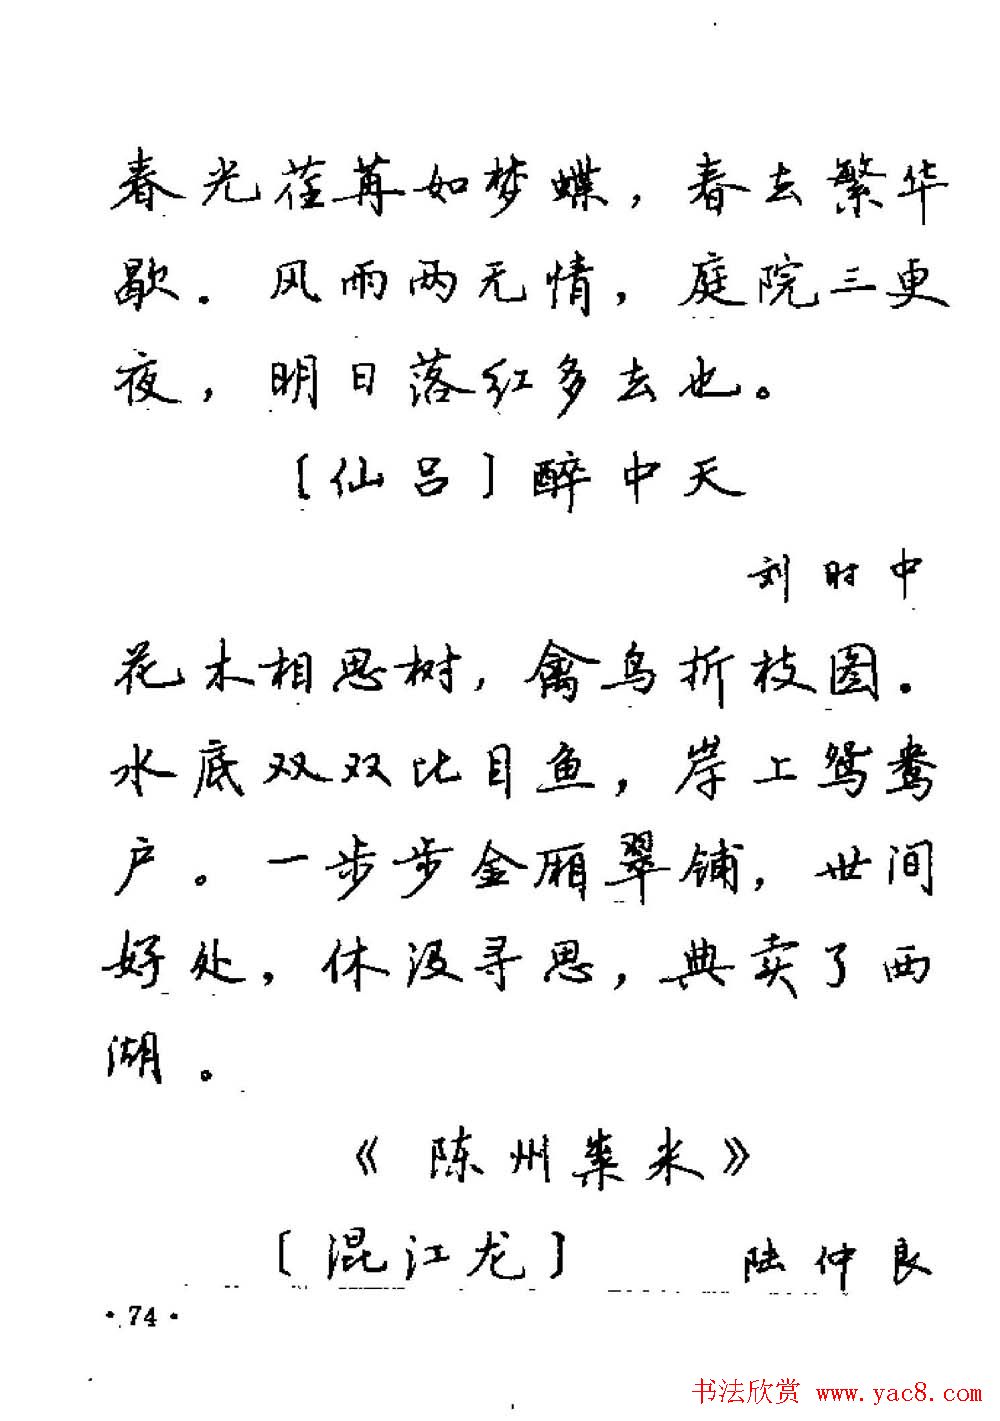 春光荏苒如梦蝶，春去繁华
歇．风雨两无情，庭院三更
夜，明日落红多去也。
〔仙吕〕醉中天
刘时中
花木相思树，禽鸟折枝图．
水底双双比目鱼，岸上鸳鸯
户。一步步金厢翠铺，世间
好处，休没寻思，典卖了西
湖。
《陈州粜米》
〔混江龙〕 陆仲良
·74·
书法欣赏 www.yac8.com